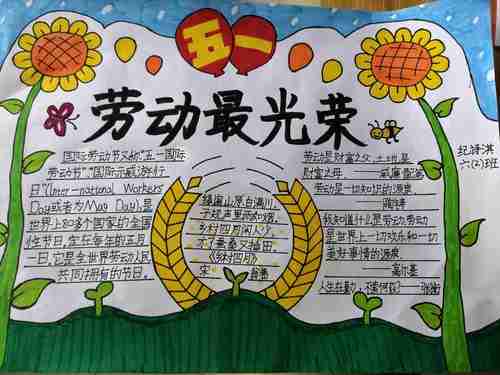 五一
劳动最光荣
纪诗淇
六(2)班
国际劳动节又称"五一国际
劳动节""国际示威游行
日"(International Workers
Day或者为May Day),是
世界上80多个国家的全国
性节日。定在每年的五月
一日。它是全世界劳动人民
共同拥有的节日。
绿遍山原白满川,
子规声里雨如烟。
乡村四月闲人少,
才了蚕桑又插田。
《乡村四月》
宋
劳动是财富之父,土地是
财富之母。——威廉·配第
劳动是一切知识的源泉
——陶铸
我知道什么是劳动:劳动
是世界上一切欢乐和一切
美好事情的源泉
——高尔基
人生在勤,不索何获?——张衡